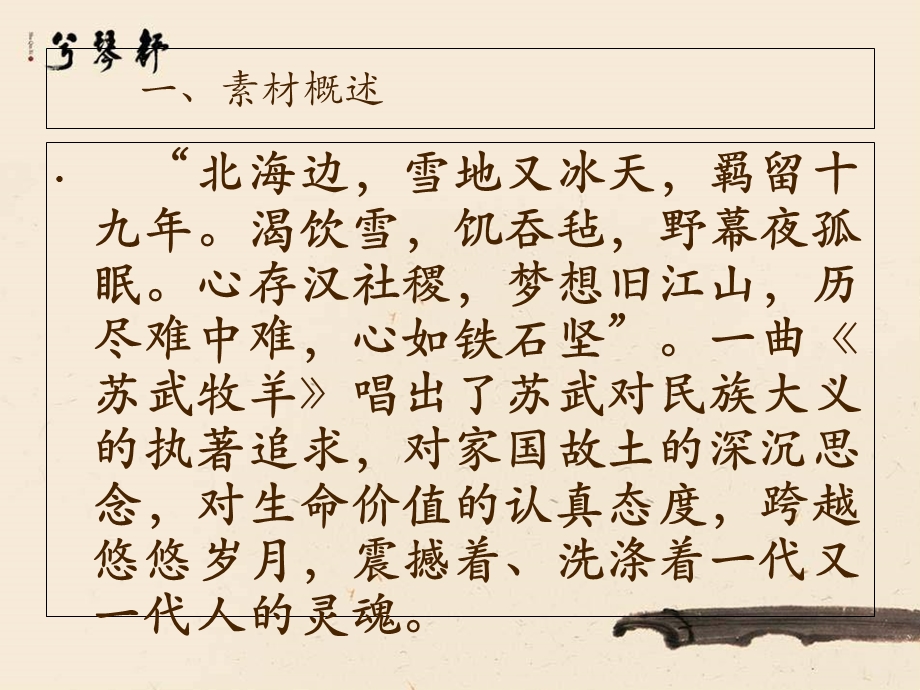 兮琴轩
一、素材概述
• “北海边，雪地又冰天，羁留十
九年。渴饮雪，饥吞毡，野幕夜孤
眠。心存汉社稷，梦想旧江山，历
尽难中难，心如铁石坚”。一曲《
苏武牧羊》唱出了苏武对民族大义
的执著追求，对家国故土的深沉思
念，对生命价值的认真态度，跨越
悠悠岁月，震撼着、洗涤着一代又
一代人的灵魂。